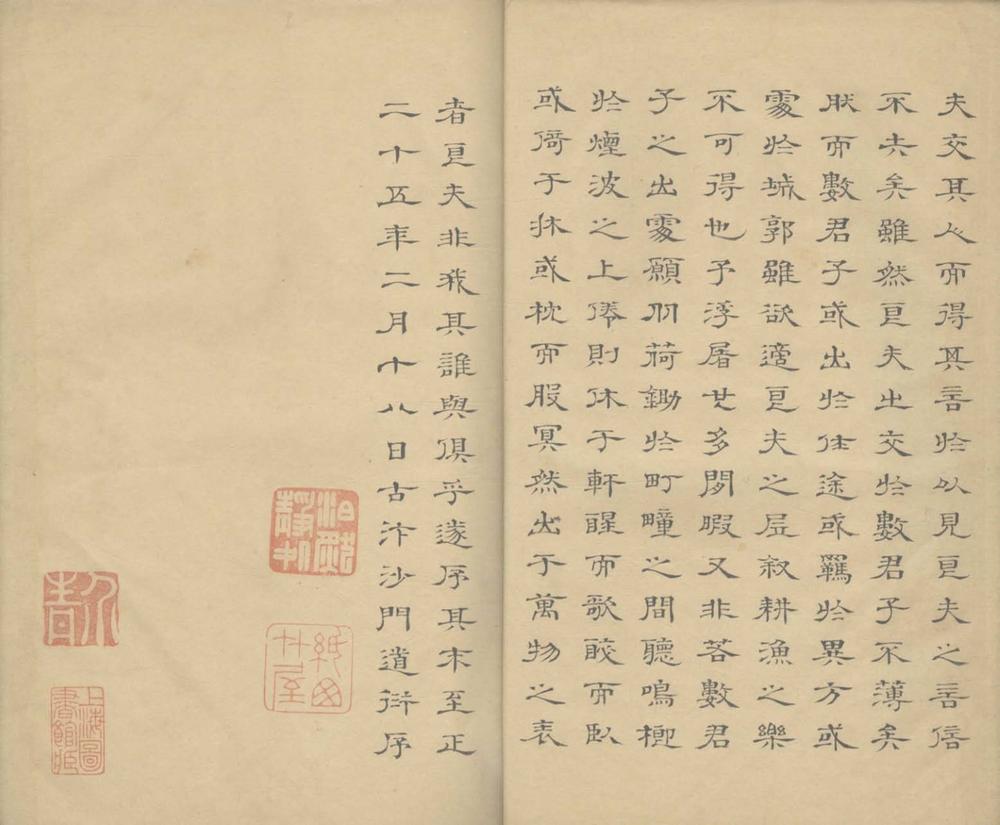 夫交其心而得其言於以見良夫之言信
不失矣雖然良夫之交於數君子不薄矣
然而數君子或出於仕途或羈於異方或
處於城郭雖欲適良夫之居叙耕漁之樂
不可得也予浮屠氏多閒暇又非若數君
子之出處願朋荷鋤於町疃之間聽鳴榔
於煙波之上倦則休于軒醒而歌而臥
或倚于牀或枕而股冥然出于萬物之表
者良夫非我其誰與俱乎遂序其末至正
二十五年二月十八日古汴沙門道衍序
上海圖書館藏